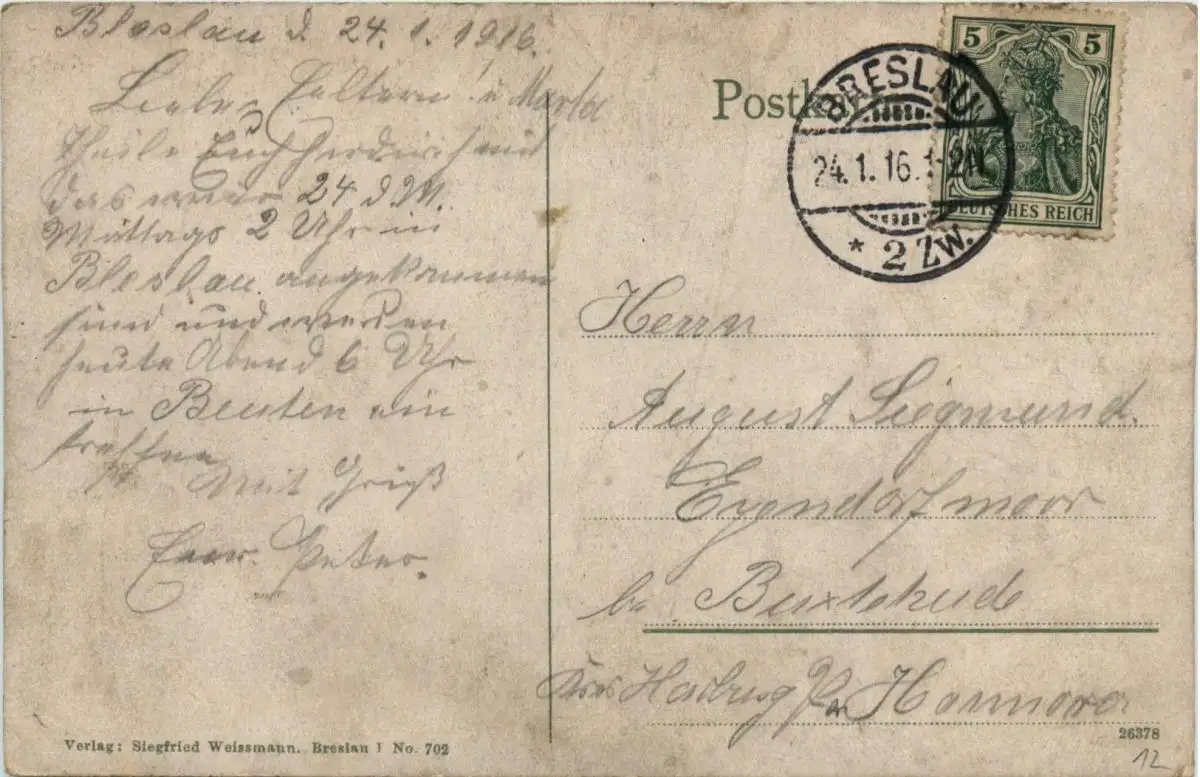 Bleslau d. 24.1.1916.
Lieben Eeltern! u Marta
theile Euch hierdurch mit
das wir 24 d M.
Mittags 2 Uhr in
Bleslau angekommen
sind und werden
heute Abend 6 Uhr
in Beuten ein
treffen
Mit Gruß
Euer Peter.
Postkarte
5 5
DEUTSCHES REICH
BRESLAU
24.1.16. 1-2N
* 2 Zw.
Herrn
August Siegmund.
moor
bei Buxtehude
Kreis Harburg Pr Hannover
Verlag: Siegfried Weissmann. Breslau I No. 702
26378
12